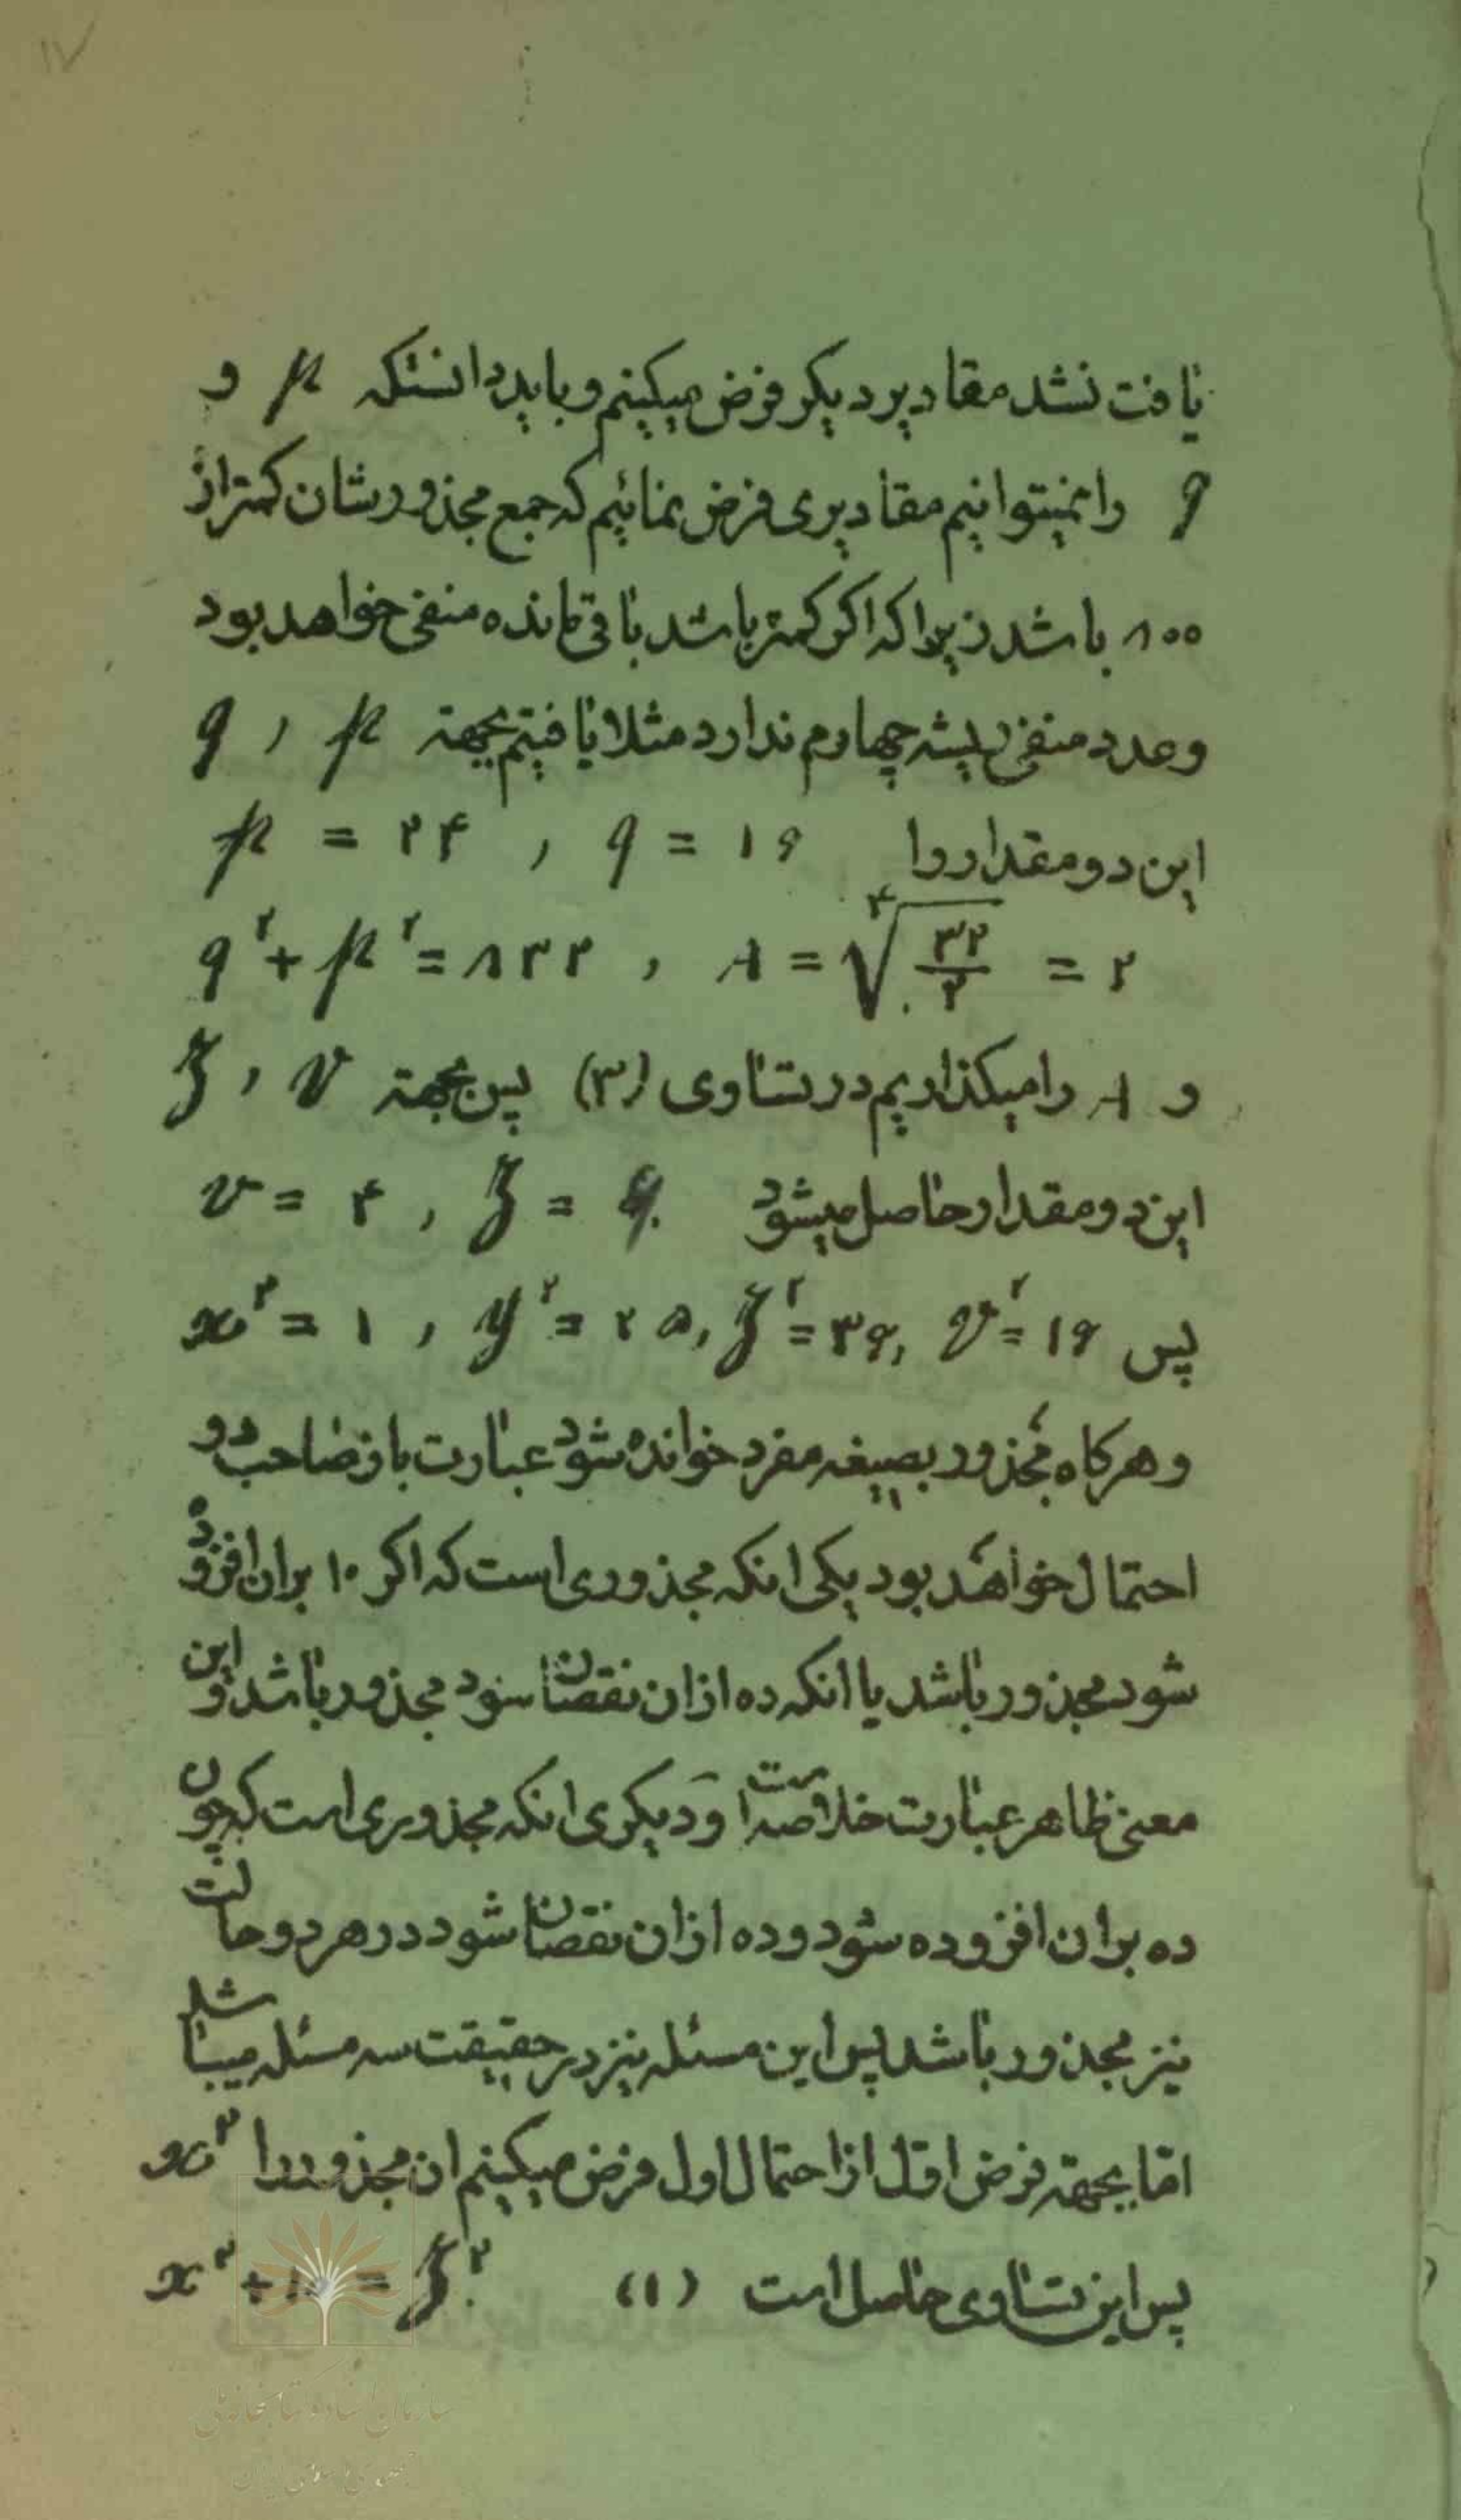 ۱۷
یافت نشد مقادیر دیکر فرض میکینم و باید دانستکه p و
q را نمیتوانیم مقادیری فرض نمائیم که جمع مجذورشان کمتر از
۸۰۰ باشد زیرا که اکر کمتر باشد باقیمانده منفی خواهد بود
و عدد منفی ریشه چهارم ندارد مثلا یافتیم بجهته p , q
این دو مقدار را p = ۲۴ , q = ۱۶
q² + p² = ۸۳۲ , s = ∜(۳۲/۲) = ۲
و s را میکذاریم در تساوی (۳) پس بجهته v , z
این دو مقدار حاصل میشود v = ۴ , z = ۶
پس x² = ۱ , y² = ۲۵ , z² = ۳۶ , v² = ۱۶
و هرکاه مجذور بصیغه مفرد خوانده شود عبارت باز صاحب دو
احتمال خواهد بود یکی انکه مجذوری است که اکر ۱۰ بران افزوده
شود مجذور باشد یا انکه ده ازان نقصان شود مجذور باشد و این
معنی ظاهر عبارت خلاصه است و دیکری انکه مجذوری است که چون
ده بران افزوده شود و ده ازان نقصان شود در هر دو حالت
نیز مجذور باشد پس این مسئله نیز در حقیقت سه مسئله میباشد
امّا بجهته فرض اوّل از احتمال اول فرض میکینم ان مجذور را x²
پس این تساوی حاصل است (۱) x² + ۱۰ = z²